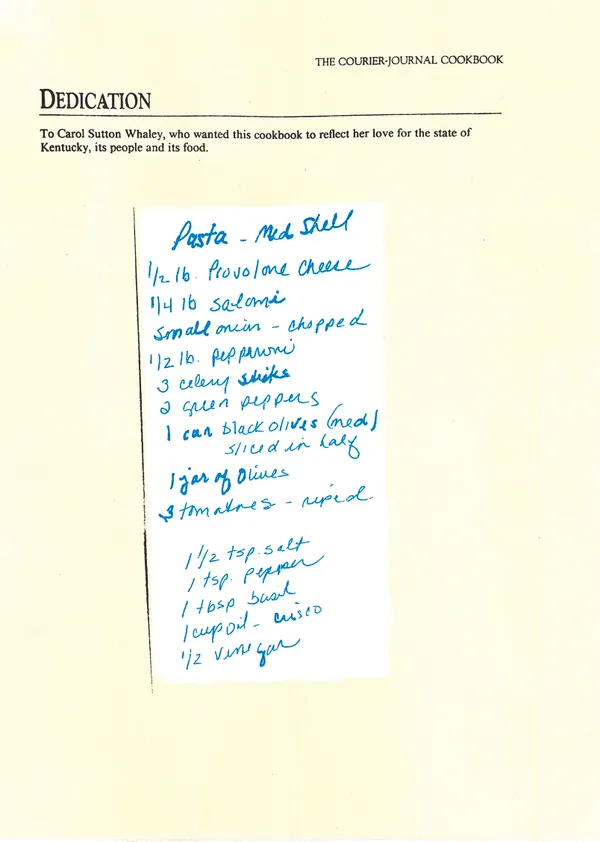 THE COURIER-JOURNAL COOKBOOK
DEDICATION
To Carol Sutton Whaley, who wanted this cookbook to reflect her love for the state of
Kentucky, its people and its food.
Pasta - Med Shell
1/2 lb. Provolone cheese
1/4 lb salami
Small onion - chopped
1/2 lb. pepperoni
3 celery sticks
2 green peppers
1 can black olives (med)
sliced in half
1 jar of Olives
3 tomatoes - riped
1 1/2 tsp. salt
1 tsp. pepper
1 tbsp basil
1 cup oil - crisco
1/2 vinegar